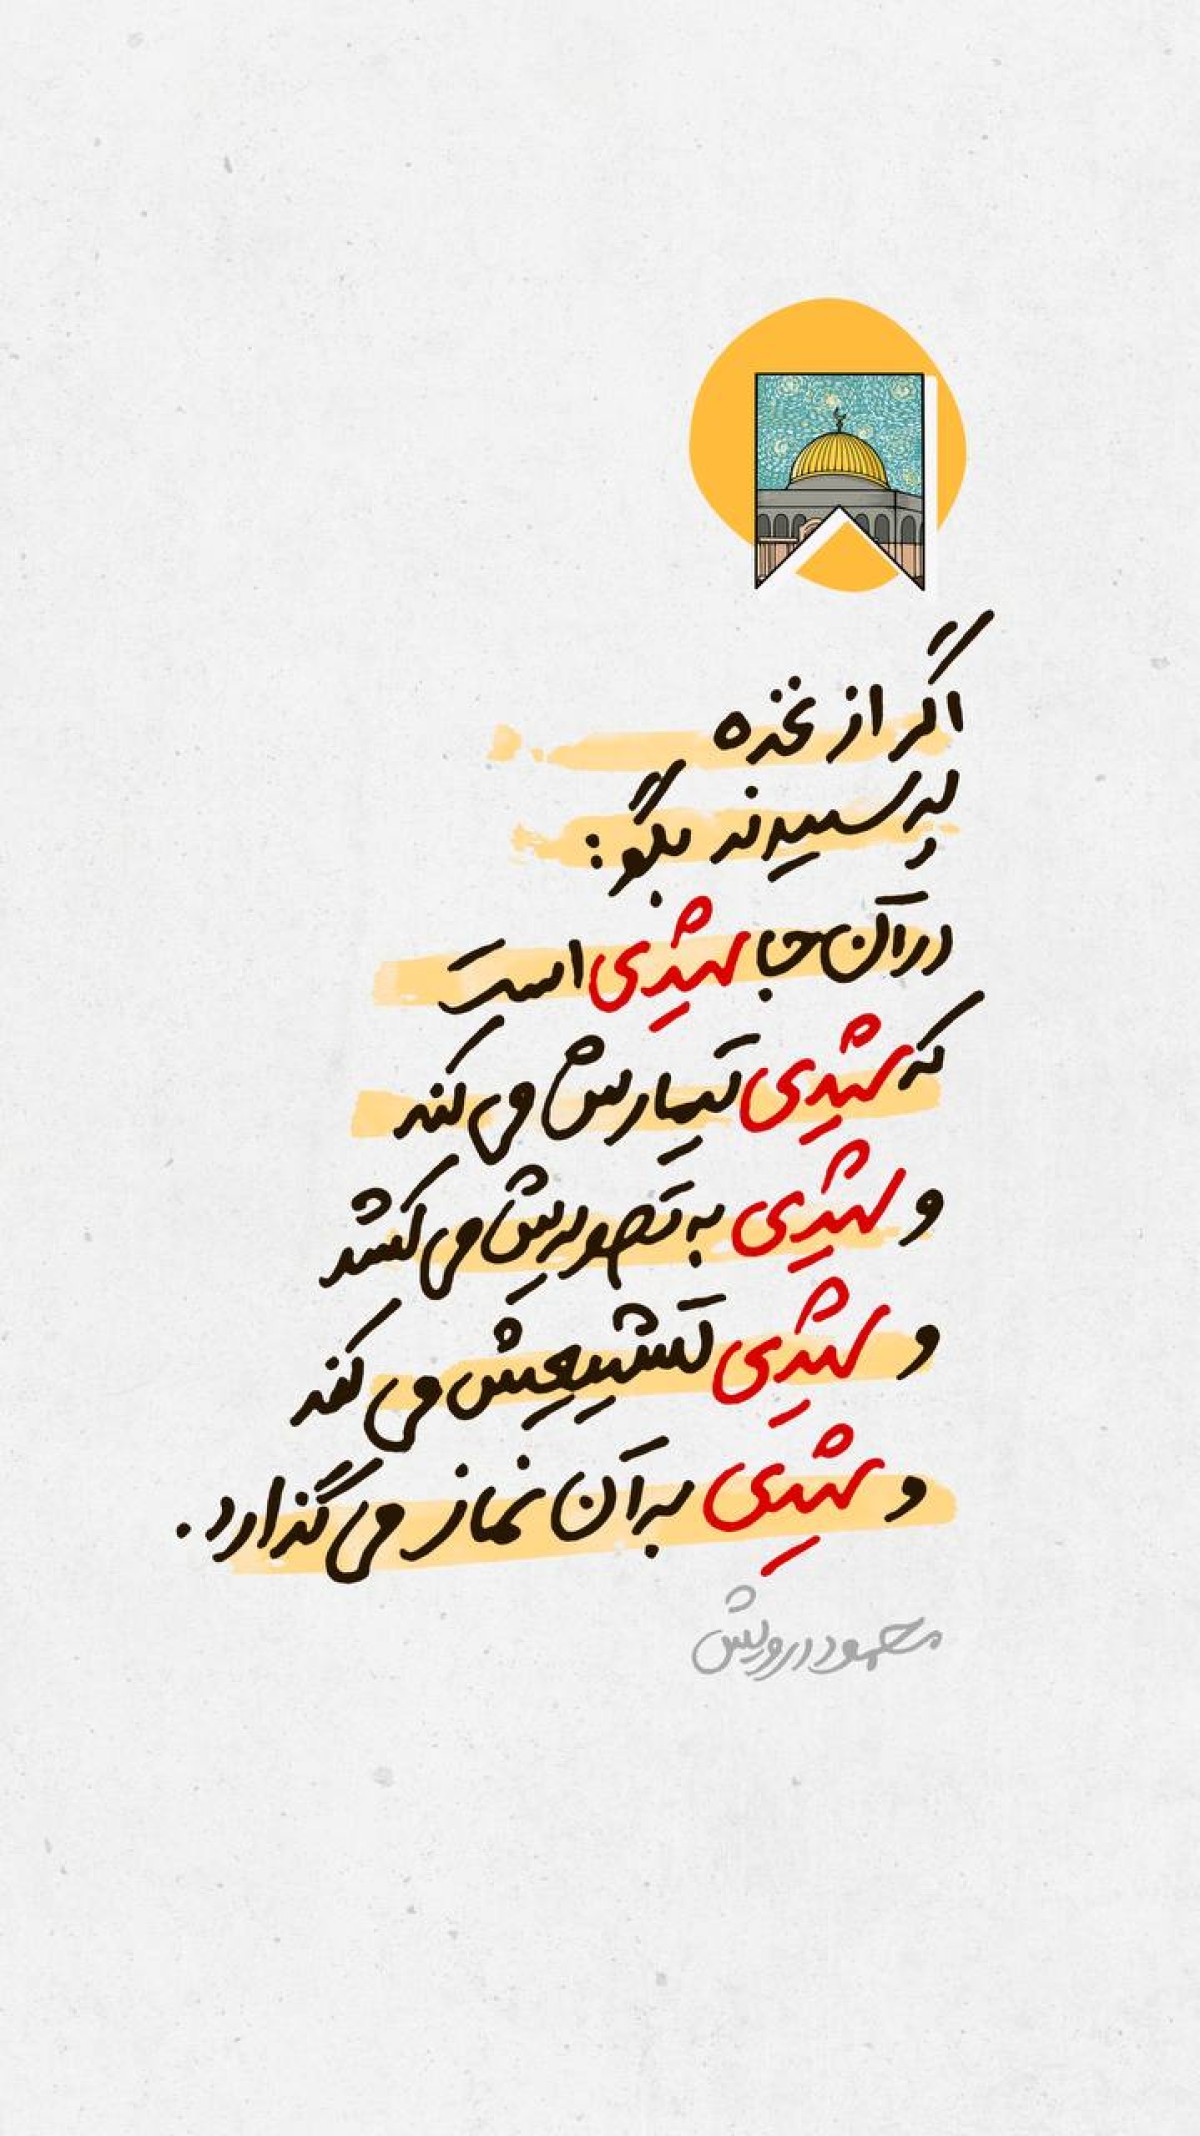 اگر از غزه
پرسیدند بگو:
در آن جا شهیدی است
که شهیدی تیمارش می کند
و شهیدی به تصویرش می کشد
و شهیدی تشییعش می کند
و شهیدی به آن نماز می گذارد.
محمود درویش